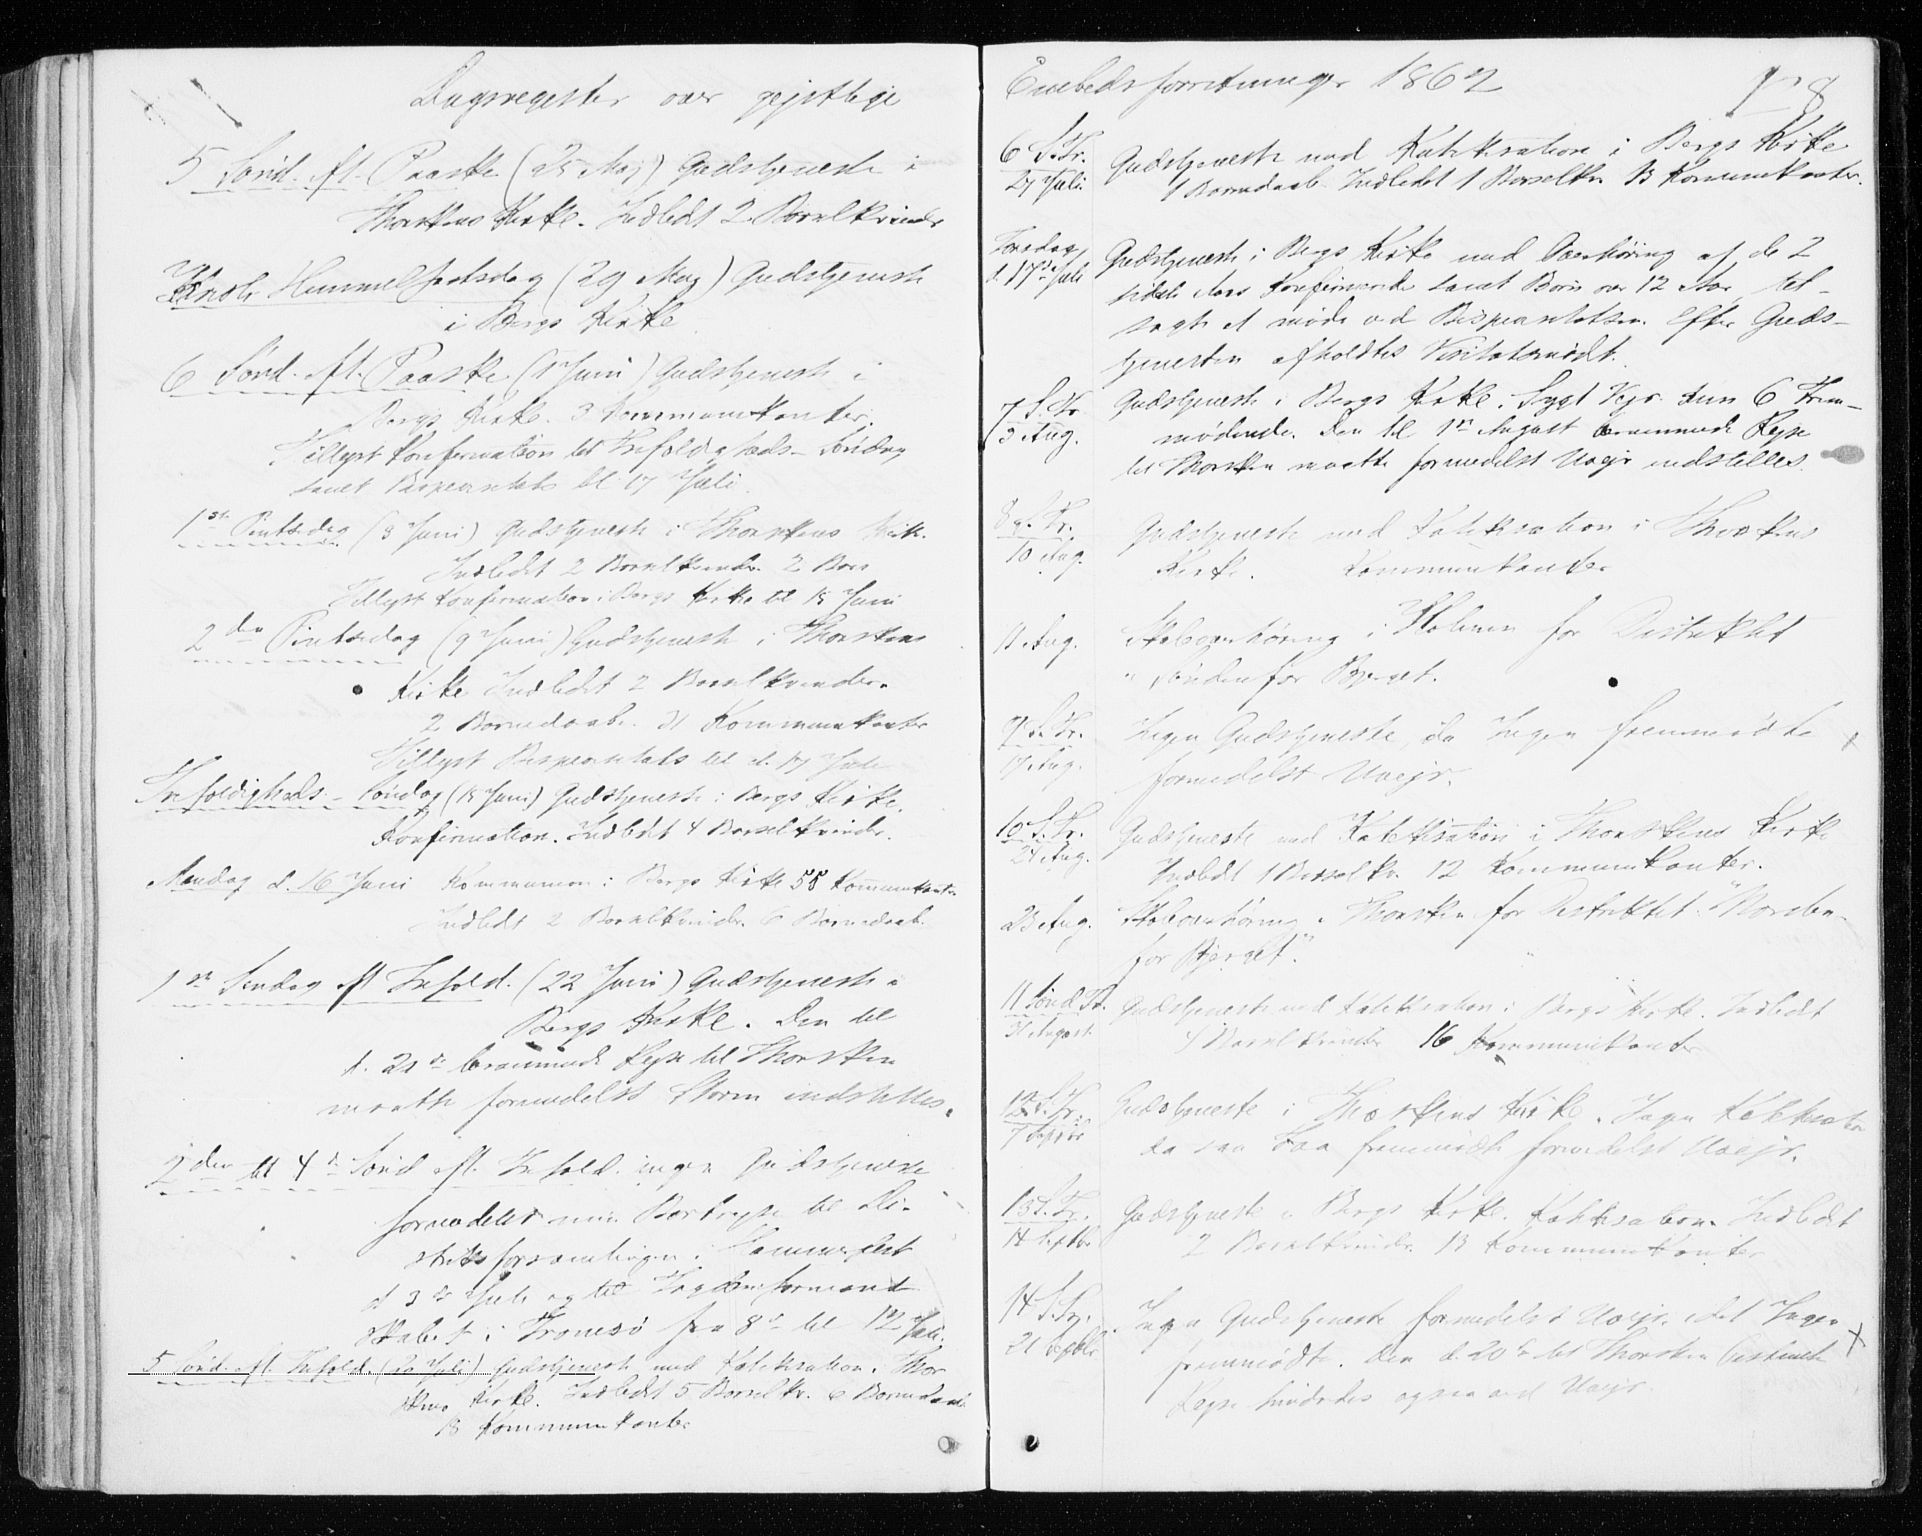 Dagsregister over gejstlige
5 Sønd. eft. Paaske (25 Maj) Gudstjeneste i
Thorskens Kirke. Indledt 2 Barselkvinder
Kristi Himmelfartsdag (29 Maj) Gudstjeneste
i Bergs Kirke
6 Sønd. eft. Paaske (1 Juni) Gudstjeneste i
Bergs Kirke. 3 Kommunikanter.
Tillyst Konfirmation til Trefoldigheds-Søndag
samt Bispevisitats til 17 Juli.
1ste Pintsedag (8 Juni) Gudstjeneste i Thorskens Kirke.
Indledt 2 Barselkvinder. 2 Børn
Tillyst Konfirmation i Bergs Kirke til 15 Juni
2den Pintsedag (9 Juni) Gudstjeneste i Thorskens
Kirke Indledt 2 Barselkvinder.
2 Barnedaab. 31 Kommunikanter
Tillyst Bispevisitats til d. 17 Juli
Trefoldigheds-Søndag (15 Juni) Gudstjeneste i Bergs Kirke.
Konfirmation. Indledt 4 Barselkvinder.
Mandag d. 16 Juni Kommunion i Bergs Kirke 58 Kommunikanter
Indledt 2 Barselkvinder. 6 Barnedaab.
1ste Søndag eft Trefold. (22 Juni) Gudstjeneste i
Bergs Kirke. Den til
d. 21de berammede Rejse til Thorsken
maatte formedelst Storm indstilles.
2den til 4de Sønd eft. Trefold. ingen Gudstjeneste
formedelst min Bortrejse til Di-
striktsforsamlingen i Hammerfest
d 3de Juli og til
skabet i Tromsø fra 8de til 12 Juli.
5 Sønd. eft. Trefold. (20 Juli) Gudstjeneste med Katekisation i Thor
skens Kirke. Indledt 5 Barselkv. 6 Barnedaab
18 Kommunikanter
Embedsforretninger 1862
6 S. Tr.
27 Juli.
Gudstjeneste med Katekisation i Bergs Kirke
1 Barnedaab Indledt 1 Barselkv. 13 Kommunikanter.
Torsdag
d. 17de Juli
Gudstjeneste i Bergs Kirke med Overhøring af de 2
sidste Aars Konfirmerede samt Børn over 12 Aar, til-
sagte at møde ved Bispevisitatsen. Efter Guds-
tjenesten afholdtes Visitatsmødet.
7 S. Tr
3 Aug.
Gudstjeneste i Bergs Kirke. Sygt Vejr. Kun 6 Frem-
mødende. Den til 1ste August berammede Rejse
til Thorsken maatte formedelst Uvejr indstilles.
8 S. Tr.
10 Aug.
Gudstjeneste med Katekisation i Thorskens
Kirke. Kommunikanter
11 Aug.
Skoleoverhøring i Holmen for Distriktet
" søndenfor Bjerget.
9 S. Tr.
17 Aug.
Ingen Gudstjeneste, da Ingen fremmødte
formedelst Uvejr.
10 S. Tr.
24 Aug.
Gudstjeneste med Katekisation i Thorskens Kirke
Indledt 1 Barselkv. 12 Kommunikanter.
25 Aug.
Skoleoverhøring i Thorsken for Distriktet "Norden-
for Bjerget".
11 Sønd Tr.
31 August
Gudstjeneste med Katekisation i Bergs Kirke. Indledt
4 Barselkvinder 16 Kommunikanter
12 S. Tr.
7 Septbr
Gudstjeneste i Thorskens Kirke. Ingen Katekisation
da saa Faa fremmødte formedelst Uvejr.
13 S. Tr.
14 Septbr
Gudstjeneste i Bergs Kirke. Katekisation. Indledt
2 Barselkvinder. 13 Kommunikanter
14 S. Tr.
21 Septbr
Ingen Gudstjeneste formedelst Uvejr, idet Ingen
fremmødte. Den d. 20de til Thorsken bestemte
Rejse hindredes ogsaa ved Uvejr